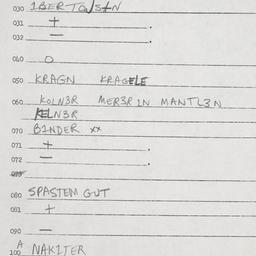 030 1BERTO
031 + .
032 — .
040 O
050 KRAGN KRAGELE
060 KOLN3R MER3R IN MANTL3N
KELN3R
070 B1NDER xx
071 + .
072 — .
080 SPASTEM GUT
081 +
090 —
A
100 NAK1TER